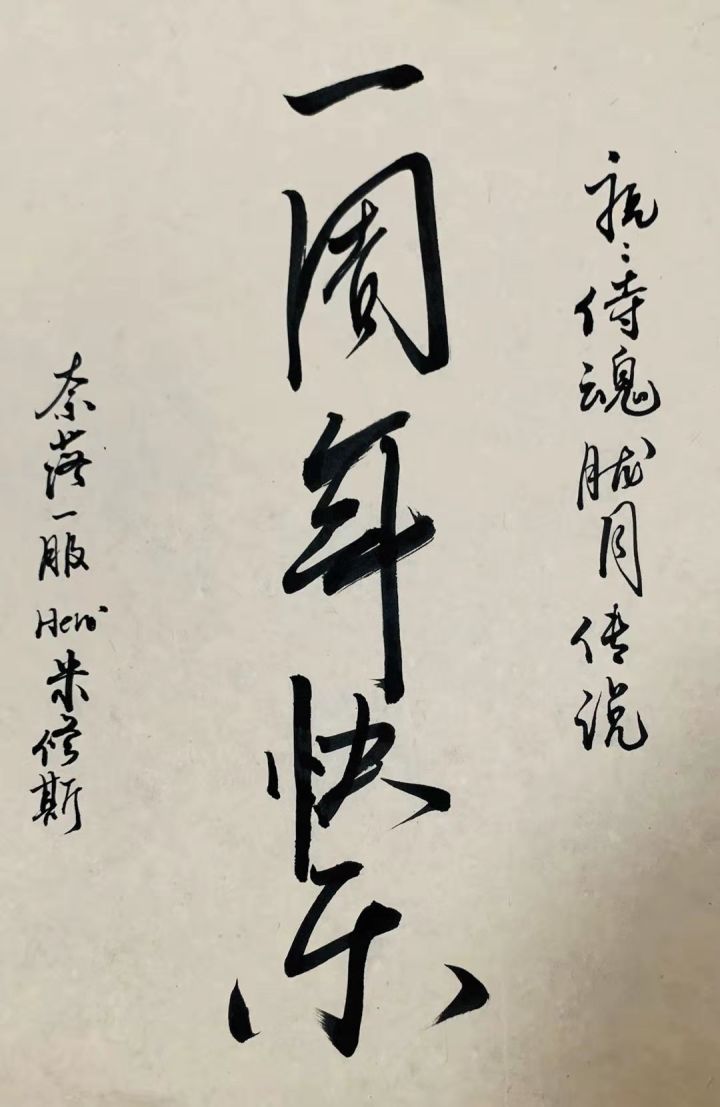 祝：侍魂胧月传说
一周年快乐
奈落一服Hero米修斯